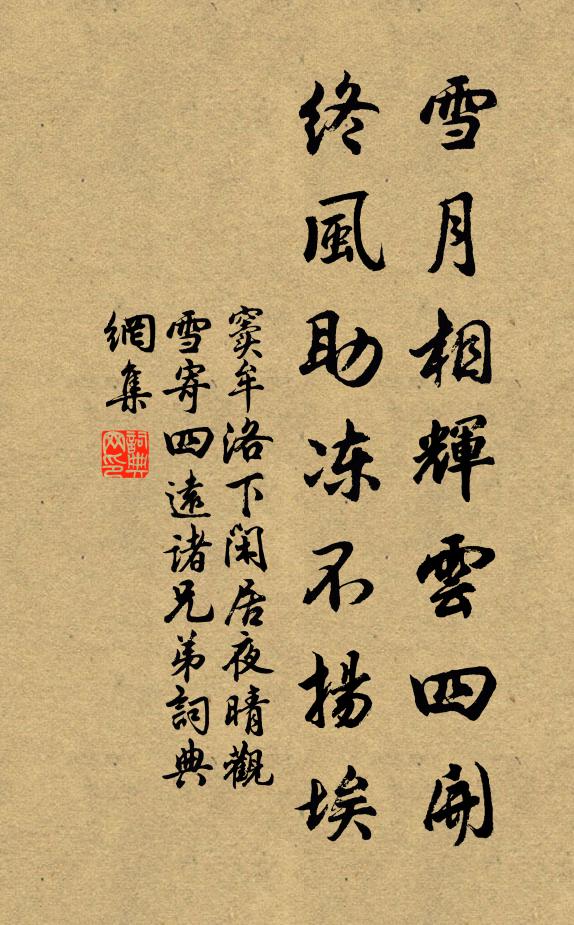 雪月相輝雲四開
終風助冻不揚埃
竇牟洛下閑居夜晴觀
雪寄四遠諸兄弟詞典
網集
詞典
网印